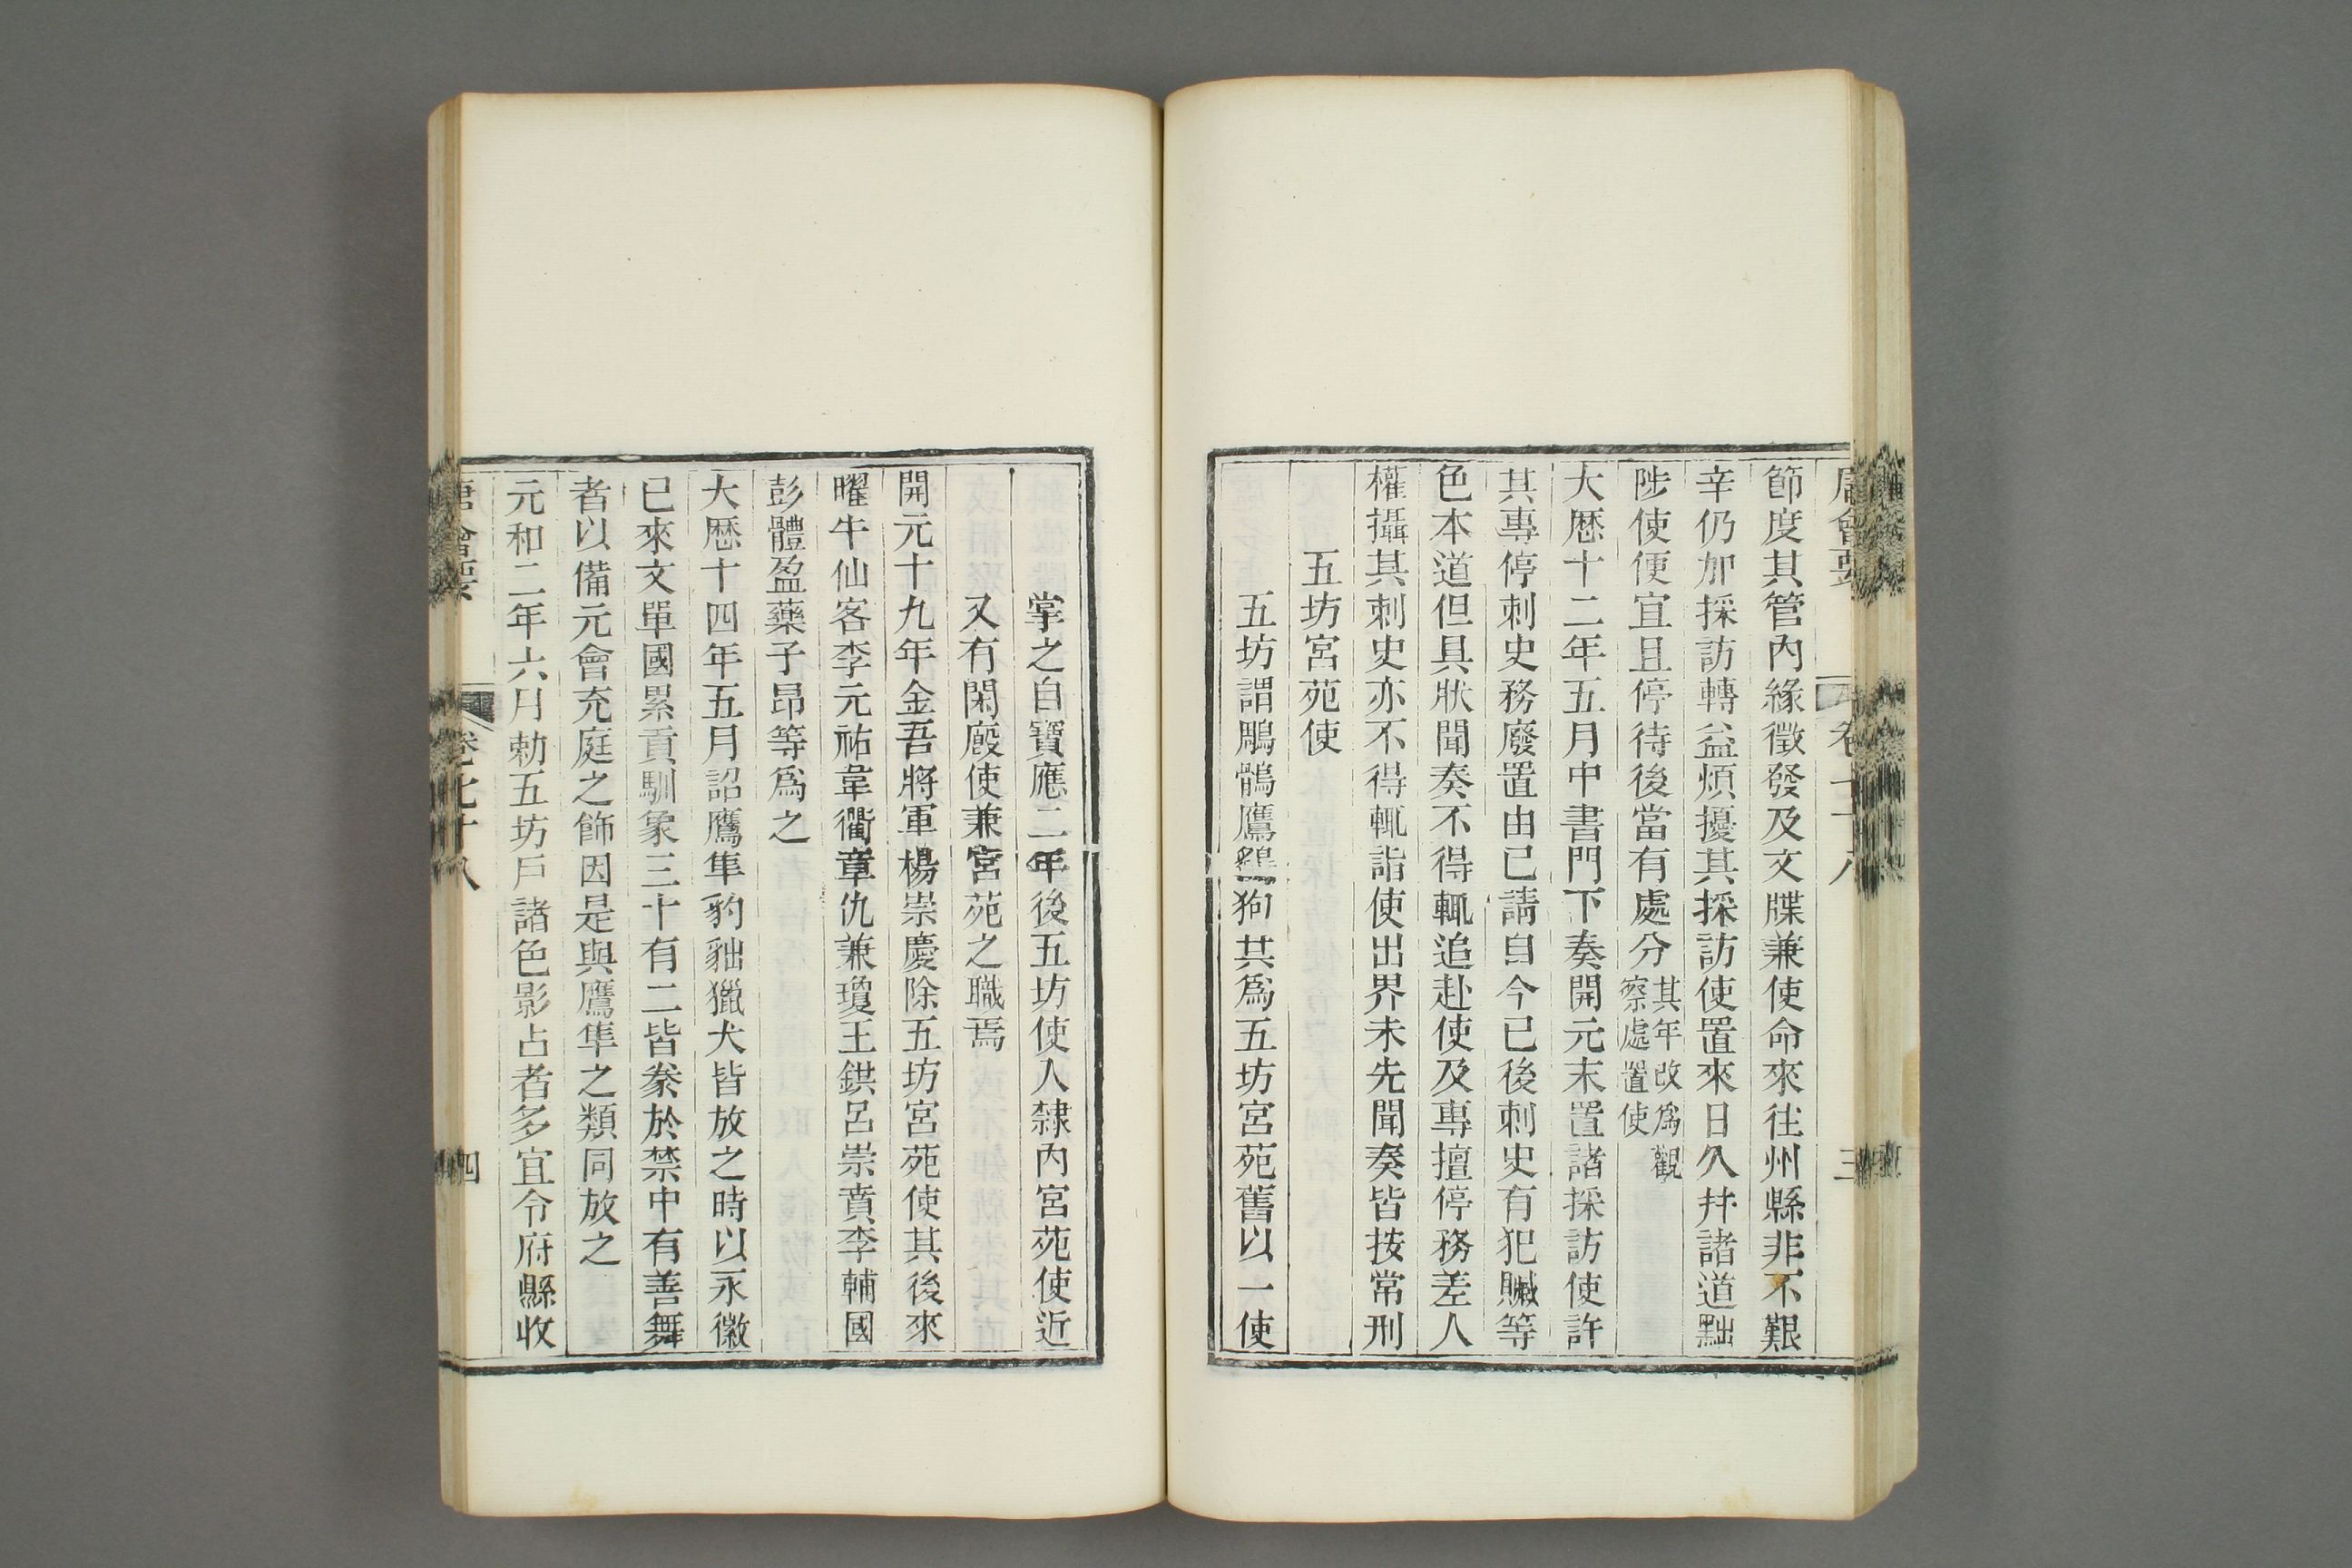 唐會要 卷七十八 三
節度其管內緣徵發及文牒兼使命來往州縣非不艱
辛仍加採訪轉益煩擾其採訪使置來日久幷諸道黜
陟使便宜且停待後當有處分其年改爲觀察處置使
大歷十二年五月中書門下奏開元末置諸採訪使許
其專停刺史務廢置由已請自今已後刺史有犯贓等
色本道但具狀聞奏不得輒追赴使及專擅停務差人
權攝其刺史亦不得輒詣使出界未先聞奏皆按常刑
五坊宮苑使
五坊謂鵰鶻鷹鷂狗共爲五坊宮苑舊以一使
掌之自寶應二年後五坊使人隸內宮苑使近
又有閑廄使兼宮苑之職焉
開元十九年金吾將軍楊崇慶除五坊宮苑使其後來
曜牛仙客李元祐韋衢章仇兼瓊王鉷呂崇賁李輔國
彭體盈藥子昂等爲之
大歷十四年五月詔鷹隼豹貀獵犬皆放之時以永徽
已來文單國累貢馴象三十有二皆豢於禁中有善舞
者以備元會充庭之飾因是與鷹隼之類同放之
元和二年六月勅五坊戶諸色影占者多宜令府縣收
唐會要 卷七十八 四